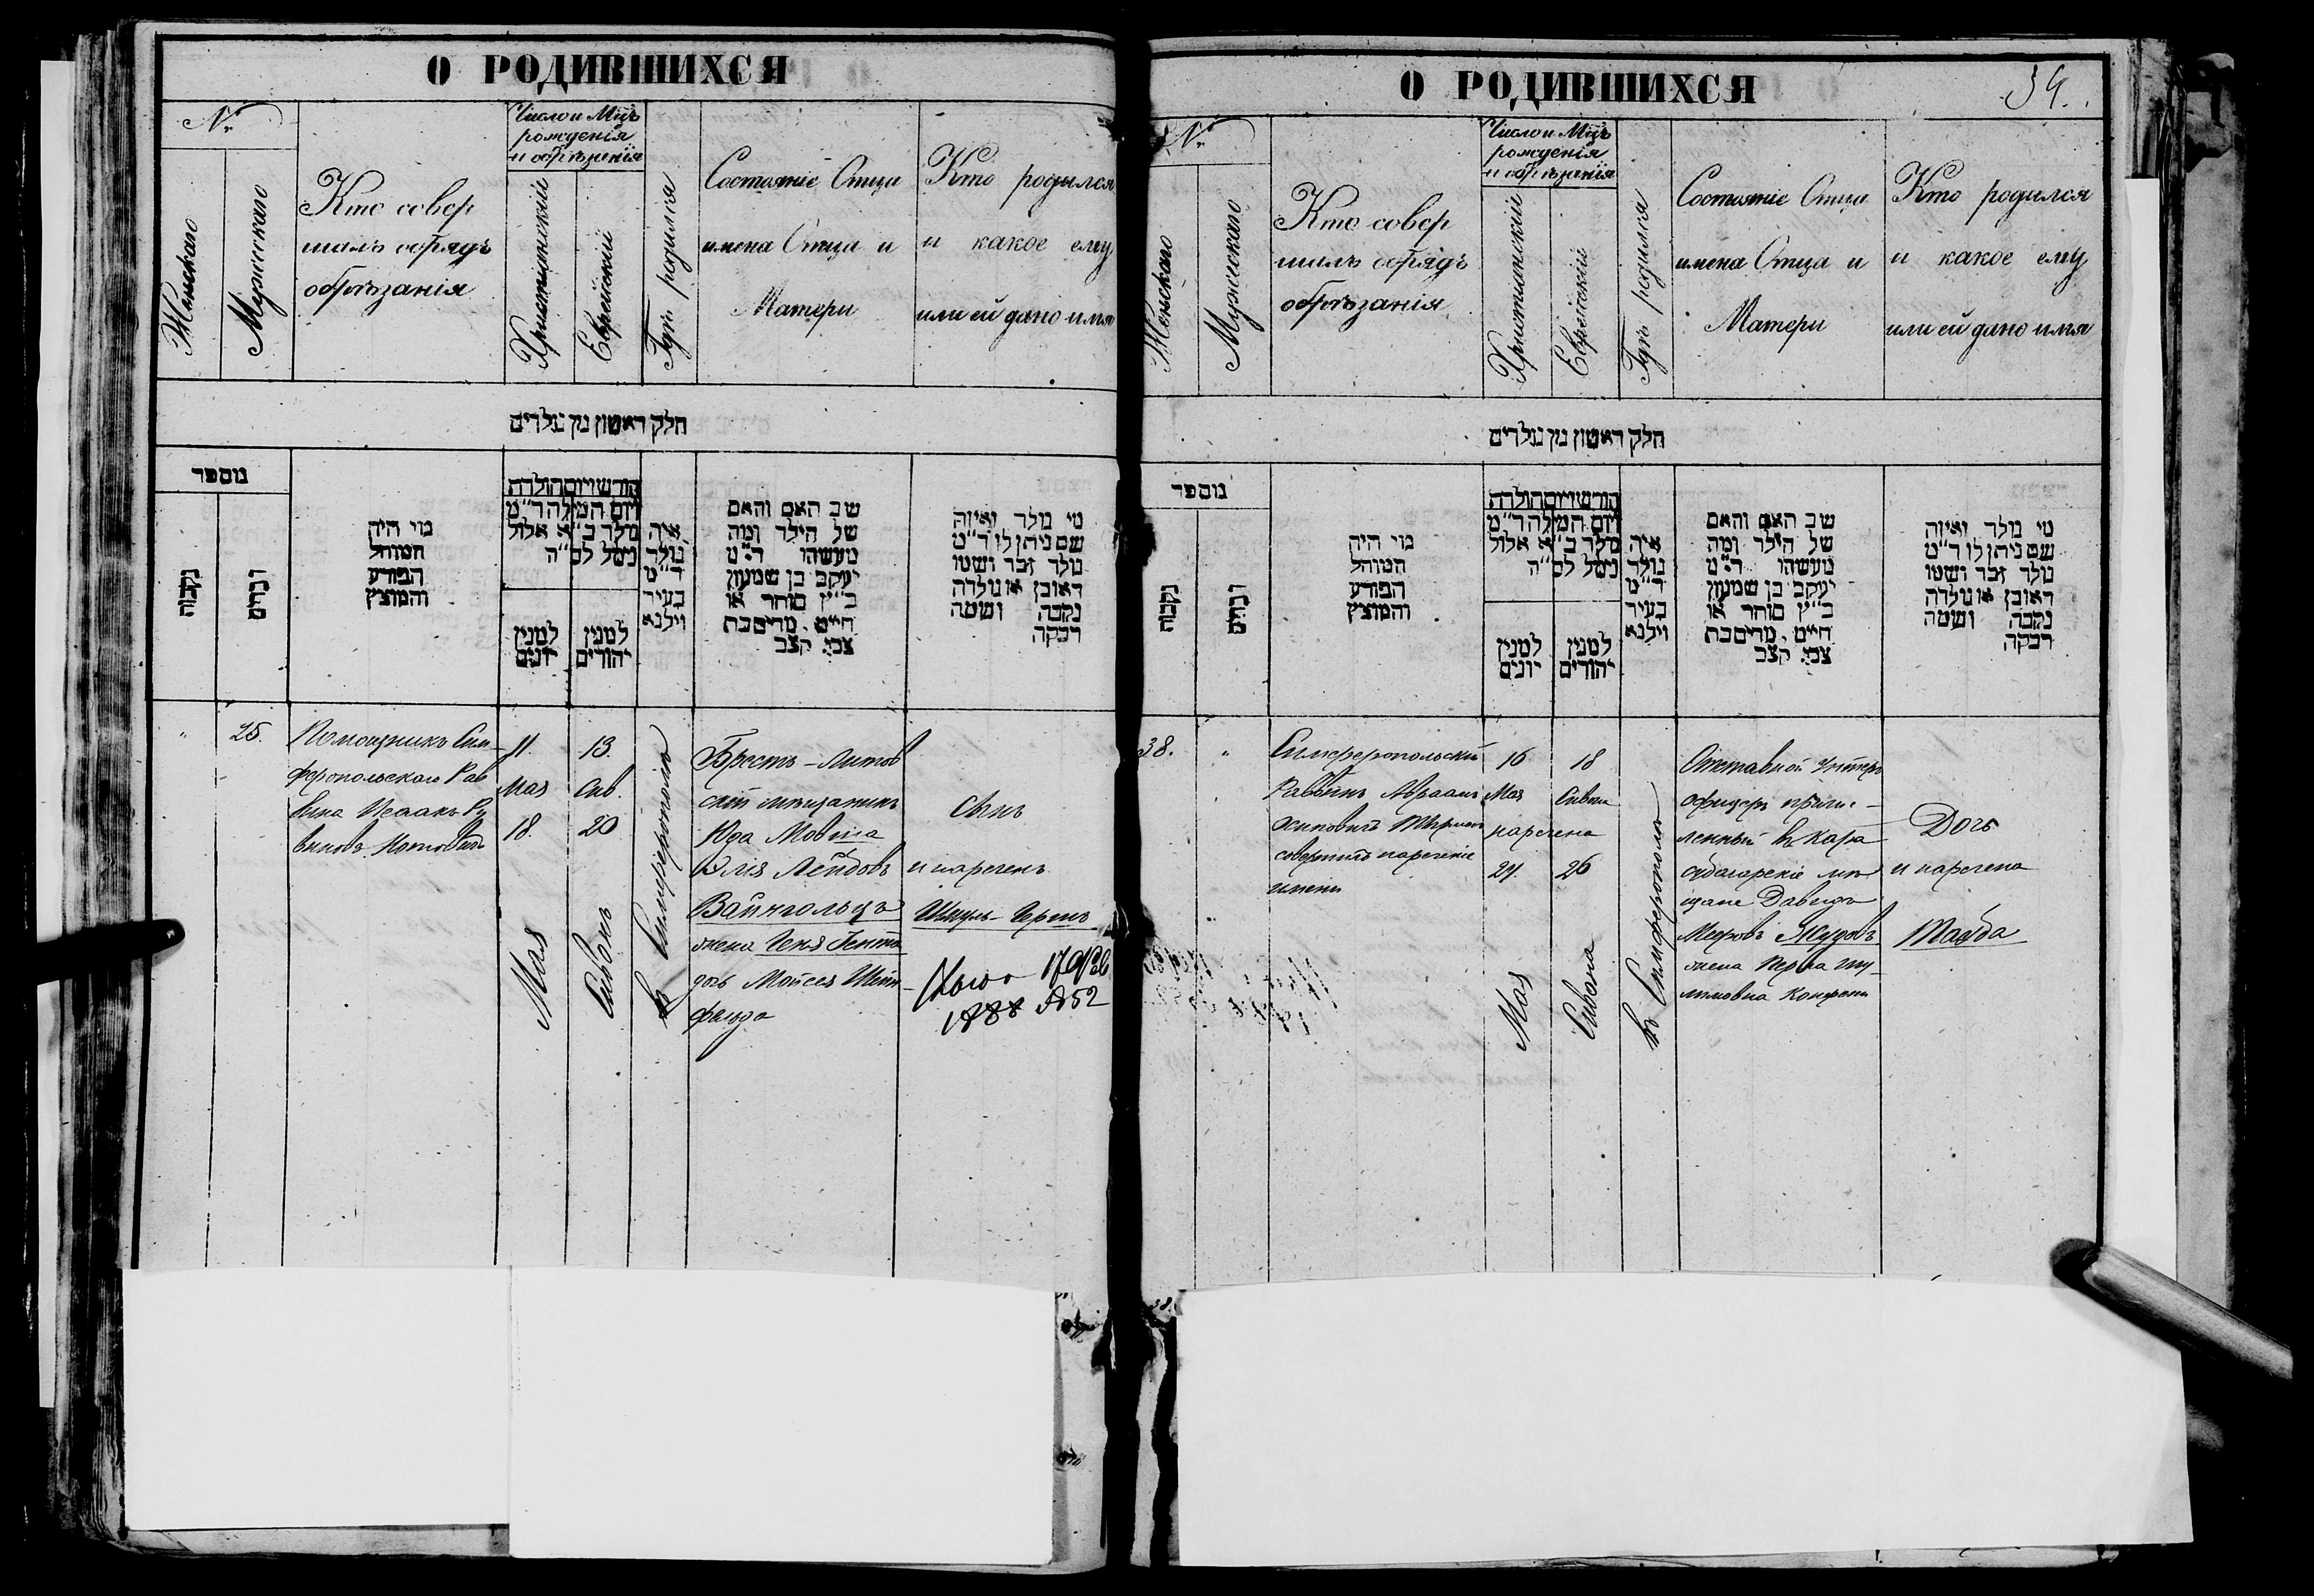 О РОДИВШИХСЯ
№
Женскаго
Мужескаго
Кто совер
шалъ обрядъ
обрѣзанія
Число и Мцъ
рожденія
и обрѣзанія
Христіанскій
Еврейскій
Гдѣ родился
Состояніе Отца
имена Отца и
Матери
Кто родился
и какое ему
или ей дано имя
חלק ראשון מן נולדים
מספר
נקבות
זכרים
מי היה
המוהל
הפורע
והמוצץ
חודש ויום הולדת
ויום המילה ד"מ
נולד ב"א אלול
נימל לס"ה
למנין
יונים
למנין
יהודים
איה
נולד
ד"מ
בעיר
ווילנא
שב האם והאם
של הילד ומה
מעשהו ד"מ
יעקב בן שמעון
כ"ץ סוחר או
חייט. מרים בת
צבי קצב
מי נולד ואיזה
שם ניתן לו ד"מ
נולד זכר ושמו
ראובן או נולדה
נקבה ושמה
רבקה
" 25.
Помощникъ Сим-
феропольскаго Рав
вина Исаакъ Ру
виновъ
11.
Мая
18.
Мая
13.
Сив.
20
Сивонъ
въ Симферополѣ
Брестъ-Литов
скій мѣщанинъ
Юда Мовша
Эліа Лейбовъ
Вайнгольцъ
жена Геня Гентл
дочь Мойсея Шейн-
фельда
сынъ
и нареченъ
Шмуль-Гершъ
1888 №52
О РОДИВШИХСЯ
34.
№
Женскаго
Мужескаго
Кто совер
шилъ обрядъ
обрѣзанія
Число и Мцъ
рожденія
и обрѣзанія
Христіанскій
Еврейскій
Гдѣ родился
Состояніе Отца
имена Отца и
Матери
Кто родился
и какое ему
или ей дано имя
חלק ראשון מן נולדים
מספר
נקבות
זכרים
מי היה
המוהל
הפורע
והמוצץ
חודש ויום הולדת
ויום המילה ד"מ
נולד ב"א אלול
נימל לס"ה
למנין
יונים
למנין
יהודים
איה
נולד
ד"מ
בעיר
ווילנא
שב האם והאם
של הילד ומה
מעשהו ד"מ
יעקב בן שמעון
כ"ץ סוחר או
חייט. מרים בת
צבי קצב
מי נולד ואיזה
שם ניתן לו ד"מ
נולד זכר ושמו
ראובן או נולדה
נקבה ושמה
רבקה
38. "
Симферопольскій
Раввинъ Авраамъ
Осиповичъ
совершилъ нареченіе
имени
16
Мая
наречена
24.
Мая
18
Сивона
26
Сивона
въ Симферополѣ
Отставной Унтеръ
офицеръ причис-
ленный въ Кара
субазарскіе мѣ
щане Давидъ
Мееровъ Жудовъ
жена Перла Шу-
лимовна
Дочь
и наречена
Тауба